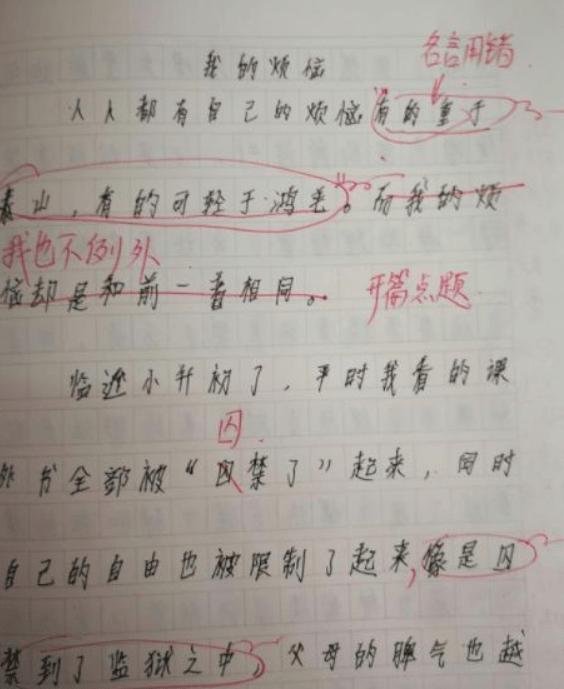 我的烦恼
名言用错
人人都有自己的烦恼有的重于
泰山，有的可轻于鸿毛。而我的烦
我也不例外
恼却是和前一者相同。 开篇点题
临近小升初了，平时我看的课
囚
外书全部被“囚禁了”起来，同时
自己的自由也被限制了起来,像是囚
禁到了监狱之中，父母的脾气也越